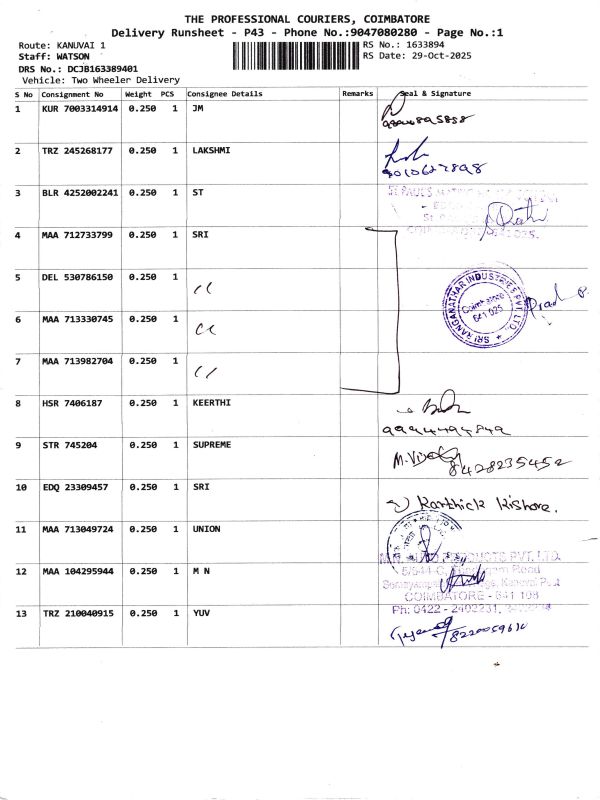 THE PROFESSIONAL COURIERS, COIMBATORE
Delivery Runsheet - P43 - Phone No.:9047080280 - Page No.:1
Route: KANUVAI 1
RS No.: 1633894
Staff: WATSON
RS Date: 29-Oct-2025
DRS No.: DCJB163389401
Vehicle: Two Wheeler Delivery
S No Consignment No Weight PCS Consignee Details Remarks Seal & Signature
1 KUR 7003314914 0.250 1 JM
2 TRZ 245268177 0.250 1 LAKSHMI
3 BLR 4252002241 0.250 1 ST
4 MAA 712733799 0.250 1 SRI
5 DEL 530786150 0.250 1 "
SRI RANGANATHAR INDUSTRIES PVT. LTD.
Coimbatore
641 025
6 MAA 713330745 0.250 1 "
7 MAA 713982704 0.250 1 "
8 HSR 7406187 0.250 1 KEERTHI
9994494849
9 STR 745204 0.250 1 SUPREME
8428235452
10 EDQ 23309457 0.250 1 SRI Karthick Kishore.
11 MAA 713049724 0.250 1 UNION
PVT. LTD.
12 MAA 104295944 0.250 1 M N
Road
COIMBATORE - 641 108
13 TRZ 210040915 0.250 1 YUV
Ph: 0422 - 2402231,